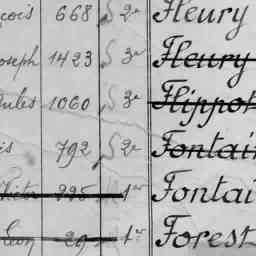 çois 668 S 2e Fleury
oseph 1423 S 3e Fleury
Jules 1060 S 3e Flippot
is 792 S 2e Fontain
Victor 225 1er Fontai
Léon 29 1er Forest